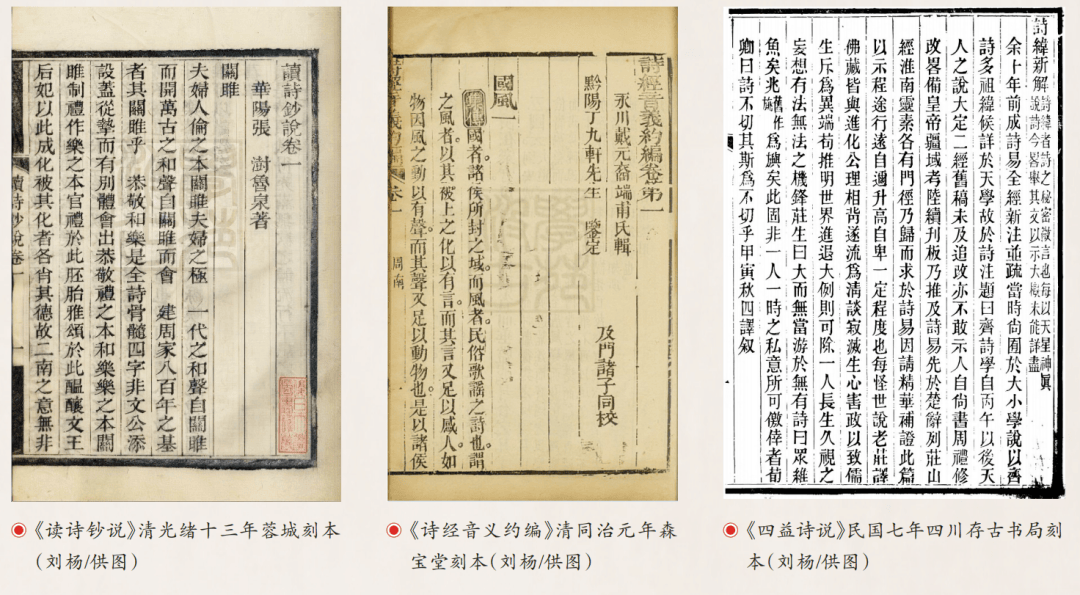 讀詩鈔說卷一
華陽張 澍魯泉著
關雎
夫婦人倫之本關雎夫婦之極 一代之和聲自關雎
而開萬古之和聲自關雎而會 建周家八百年之基
者其關雎乎 恭敬和樂是全詩骨髓四字非文公添
設蓋從摯而有別體會出恭敬禮之本和樂樂之本關
雎制禮作樂之本官禮於此胚胎雅頌於此醞釀文王
后妃以此成化被其化者各肖其德故二南之意無非
讀詩鈔說卷一
《读诗钞说》清光绪十三年蓉城刻本
(刘杨/供图)
詩經音義約編卷第一
永川戴元裔端甫氏輯
黔陽丁九軒先生 鑒定
及門諸子同校
國風一
集傳國者諸侯所封之域。而風者民俗歌謠之詩也。謂
之風者。以其被上之化以有言。而其言又足以感人。如
物因風之動以有聲。而其聲又足以動物也。是以諸侯
詩經音義約編 卷一 周南
《诗经音义约编》清同治元年森
宝堂刻本(刘杨/供图)
詩緯新解 詩緯者詩之秘密微言也每以天星神眞
說詩今畧舉其文以示大槩未能詳盡
余十年前成詩易全經新注並疏當時尚囿於大小學說以齊
詩多祖緯候詳於天學故於詩注題曰齊詩學自丙午以後天
人之說大定二經舊稿未及追改亦不敢示人自尚書周禮修
改畧備皇帝疆域考陸續刋板乃推及詩易先於楚辭列莊山
經淮南靈素各有門徑乃歸而求於詩易因請精華補證此篇
以示程途行遠自邇升高自卑一定程度也每怪世說老莊譯
佛藏皆與進化公理相背遂流為清談寂滅生心害政以致儒
生斥為異端苟推明世界進退大例則可除一人長生久視之
妄想有法無法之機鋒莊生曰大而無當游於無有詩曰眾維
魚矣兆作為旟矣此固非一人一時之私意所可儌倖者荀
卿曰詩不切其斯為不切乎甲寅秋四譯叙
《四益诗说》民国七年四川存古书局刻
本(刘杨/供图)